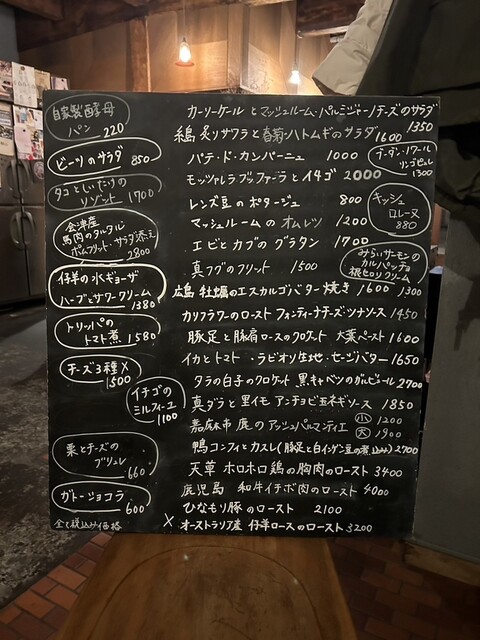 自家製酵母
パン 220
ビーツのサラダ 850
タコといたりの
リゾット 1700
会津産
馬肉のタルタル
ポムフリット・サラダ添え
2800
仔羊の水ギョーザ
ハーブとサワークリーム
1380
トリッパの
トマト煮 1580
チーズ3種 X
1500
イチゴの
ミルフィーユ
1100
栗とチーズの
ブリュレ
660
ガトーショコラ
600
全て税込み価格
カーリーケールとマッシュルーム・パルミジャーノチーズのサラダ
1350
炙りサワラと春菊・ハトムギのサラダ
1600
パテ・ド・カンパーニュ 1000
ブーダン・ノワール
リンゴピュレ
1300
モッツァレラブッファーラとイチゴ 2000
レンズ豆のポタージュ 800
キッシュ
ロレーヌ
880
マッシュルームのオムレツ 1200
エビとカブのグラタン 1700
みらいサーモンの
カルパッチョ
根セロリクリーム
1300
真フグのフリット 1500
広島 牡蠣のエスカルゴバター焼き 1600
カリフラワーのロースト フォンティーナチーズ・ソナソース 1450
豚足と豚肩ロースのクロケット 大葉ペースト 1600
イカとトマト・ラビオリ生地・セージバター 1650
タラの白子のクロケット 黒キャベツのガルビュール 2700
真ダラと里イモ アンチョビ玉ネギソース 1850
嘉麻市 鹿のアッシュパルマンティエ 小 1200
大 1900
鴨コンフィとカスレ(豚足と白インゲン豆の煮込み) 2700
天草 ホロホロ鶏の胸肉のロースト 3400
鹿児島 和牛イチボ肉のロースト 4000
ひなもり豚のロースト 2100
X オーストラリア産 仔羊ロースのロースト 3200